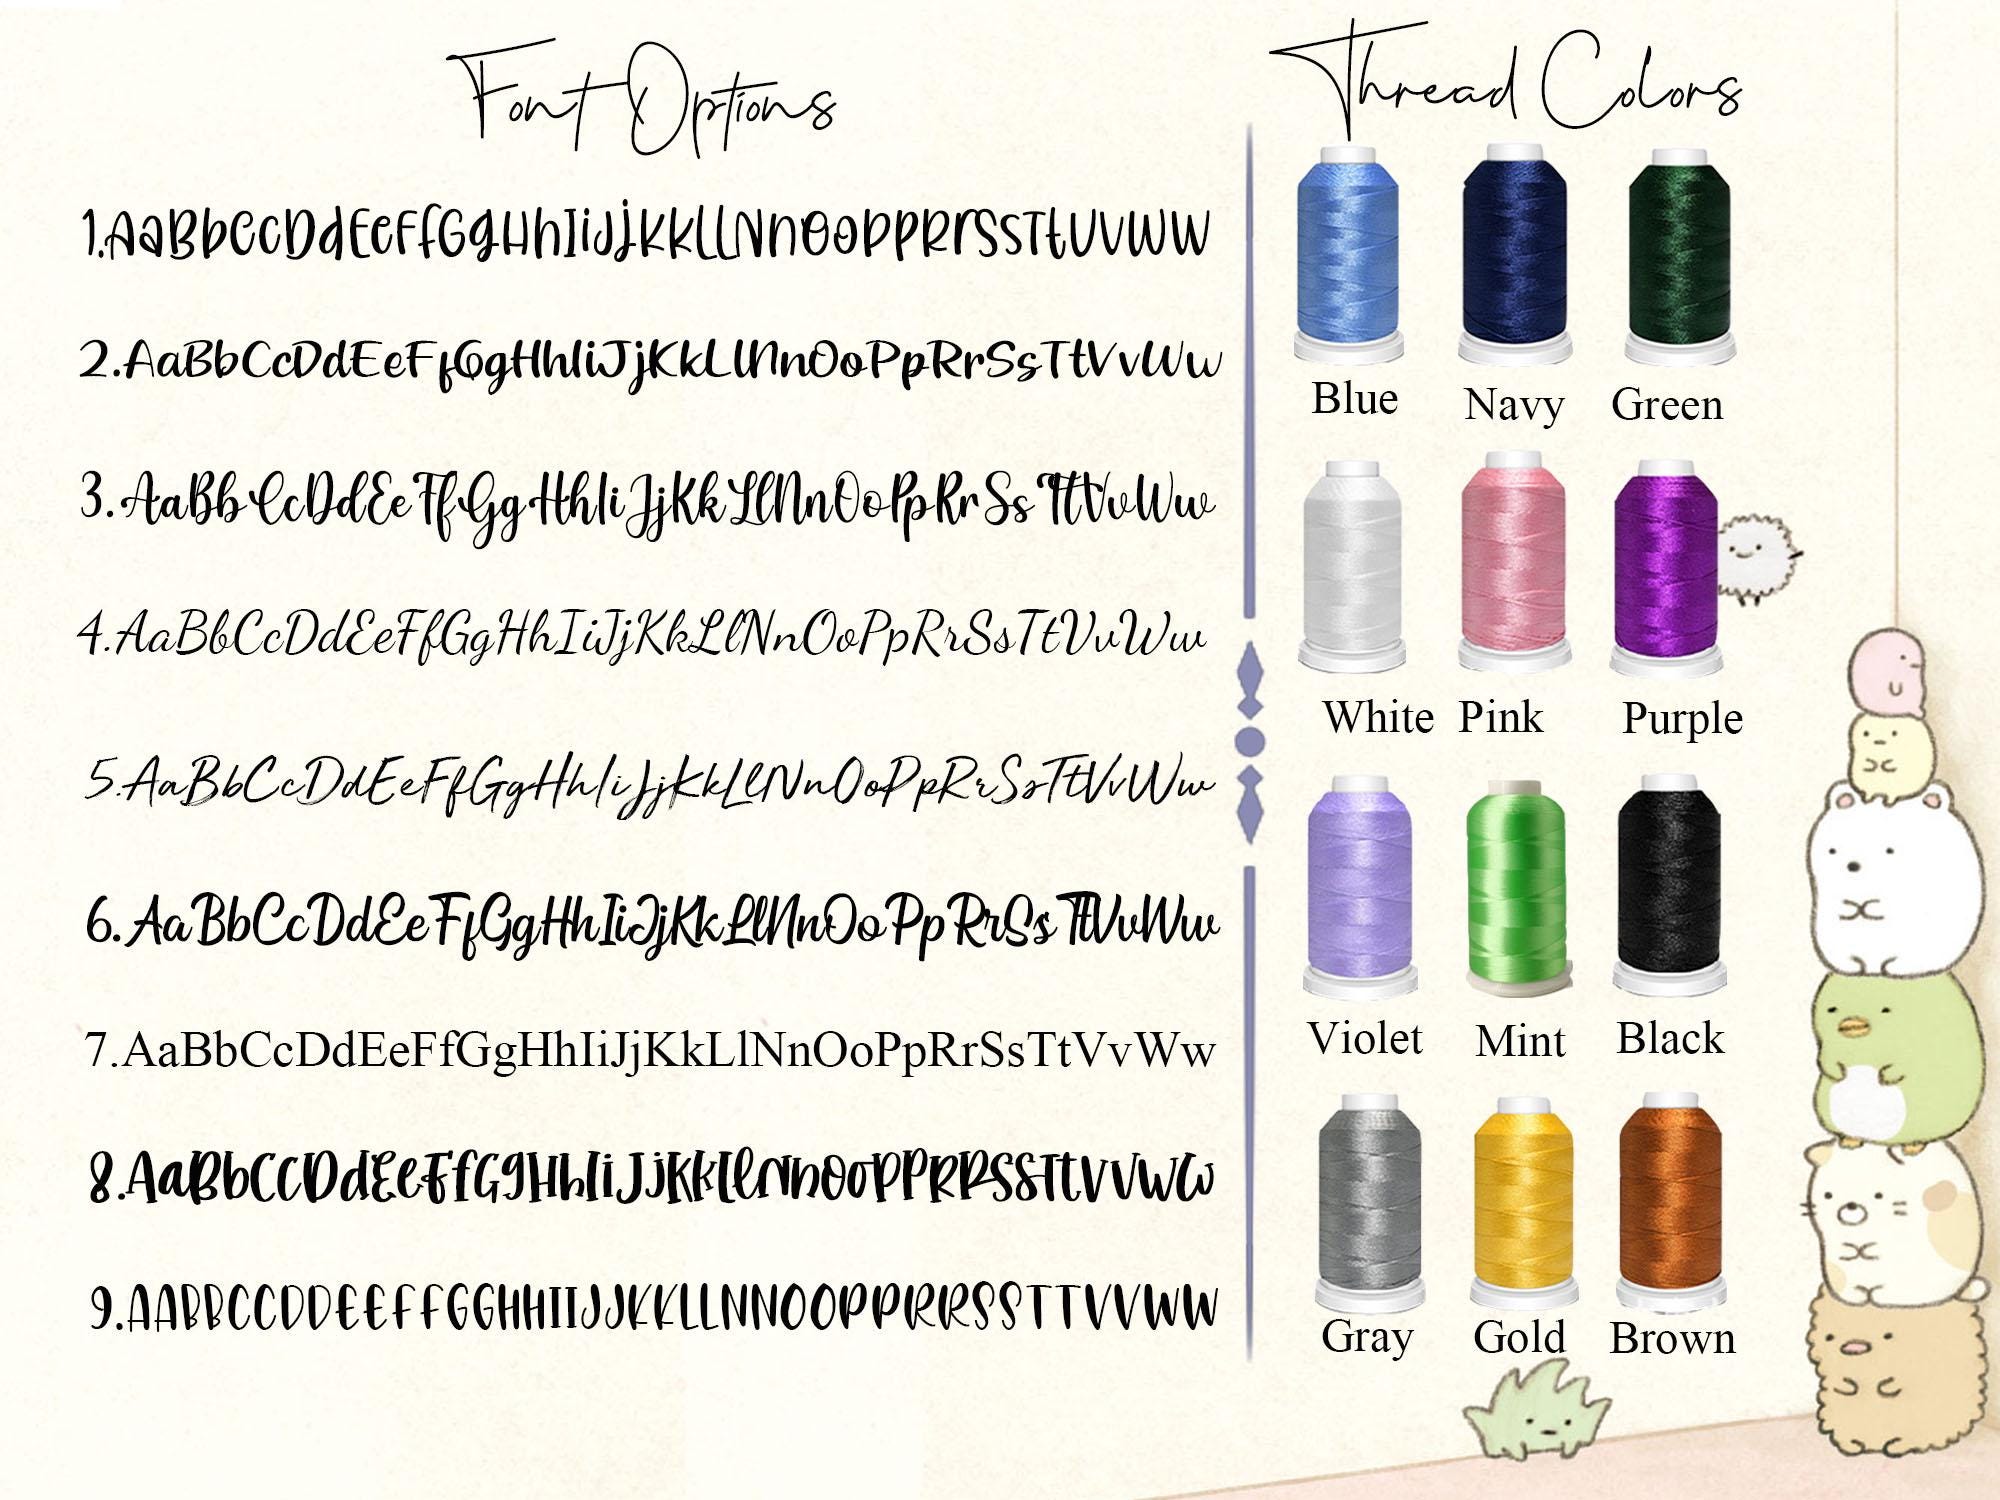 Font Options
1.AaBbCcDdEeFfGgHhIiJjKkLLNnOoPPRrSsTtUVWW
2.AaBbCcDdEeFfGgHhIiJjKkLlNnOoPpRrSsTtVvWw
3.AaBbCcDdEeFfGgHhIiJjKkLlNnOoPpRrSsTtVvWw
4.AaBbCcDdEeFfGgHhIiJjKkLlNnOoPpRrSsTtVvWw
5.AaBbCcDdEeFfGgHhIiJjKkLlNnOoPpRrSsTtVvWw
6.AaBbCcDdEeFfGgHhIiJjKkLlNnOoPpRrSsTtVvWw
7.AaBbCcDdEeFfGgHhIiJjKkLlNnOoPpRrSsTtVvWw
8.AaBbCcDdEeFfGgHhIiJjKkLlNnOoPPRRSSTtVVWw
9.AABBCCDDEEFFGGHHIIJJKKLLNNOOPPRRSSTTVVWW
Thread Colors
Blue Navy Green
White Pink Purple
Violet Mint Black
Gray Gold Brown